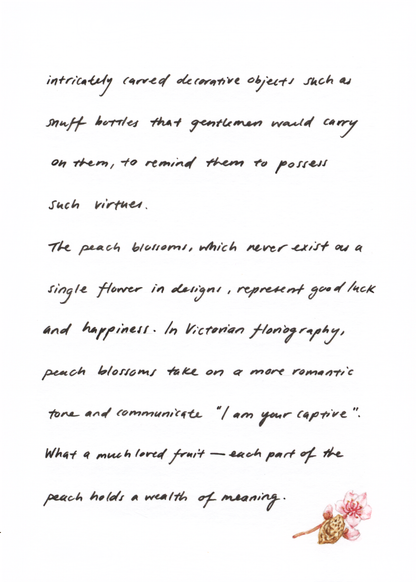 intricately carved decorative objects such as
snuff bottles that gentlemen would carry
on them, to remind them to possess
such virtues.
The peach blossoms, which never exist as a
single flower in designs, represent good luck
and happiness. In Victorian floriography,
peach blossoms take on a more romantic
tone and communicate "I am your captive".
What a much loved fruit — each part of the
peach holds a wealth of meaning.